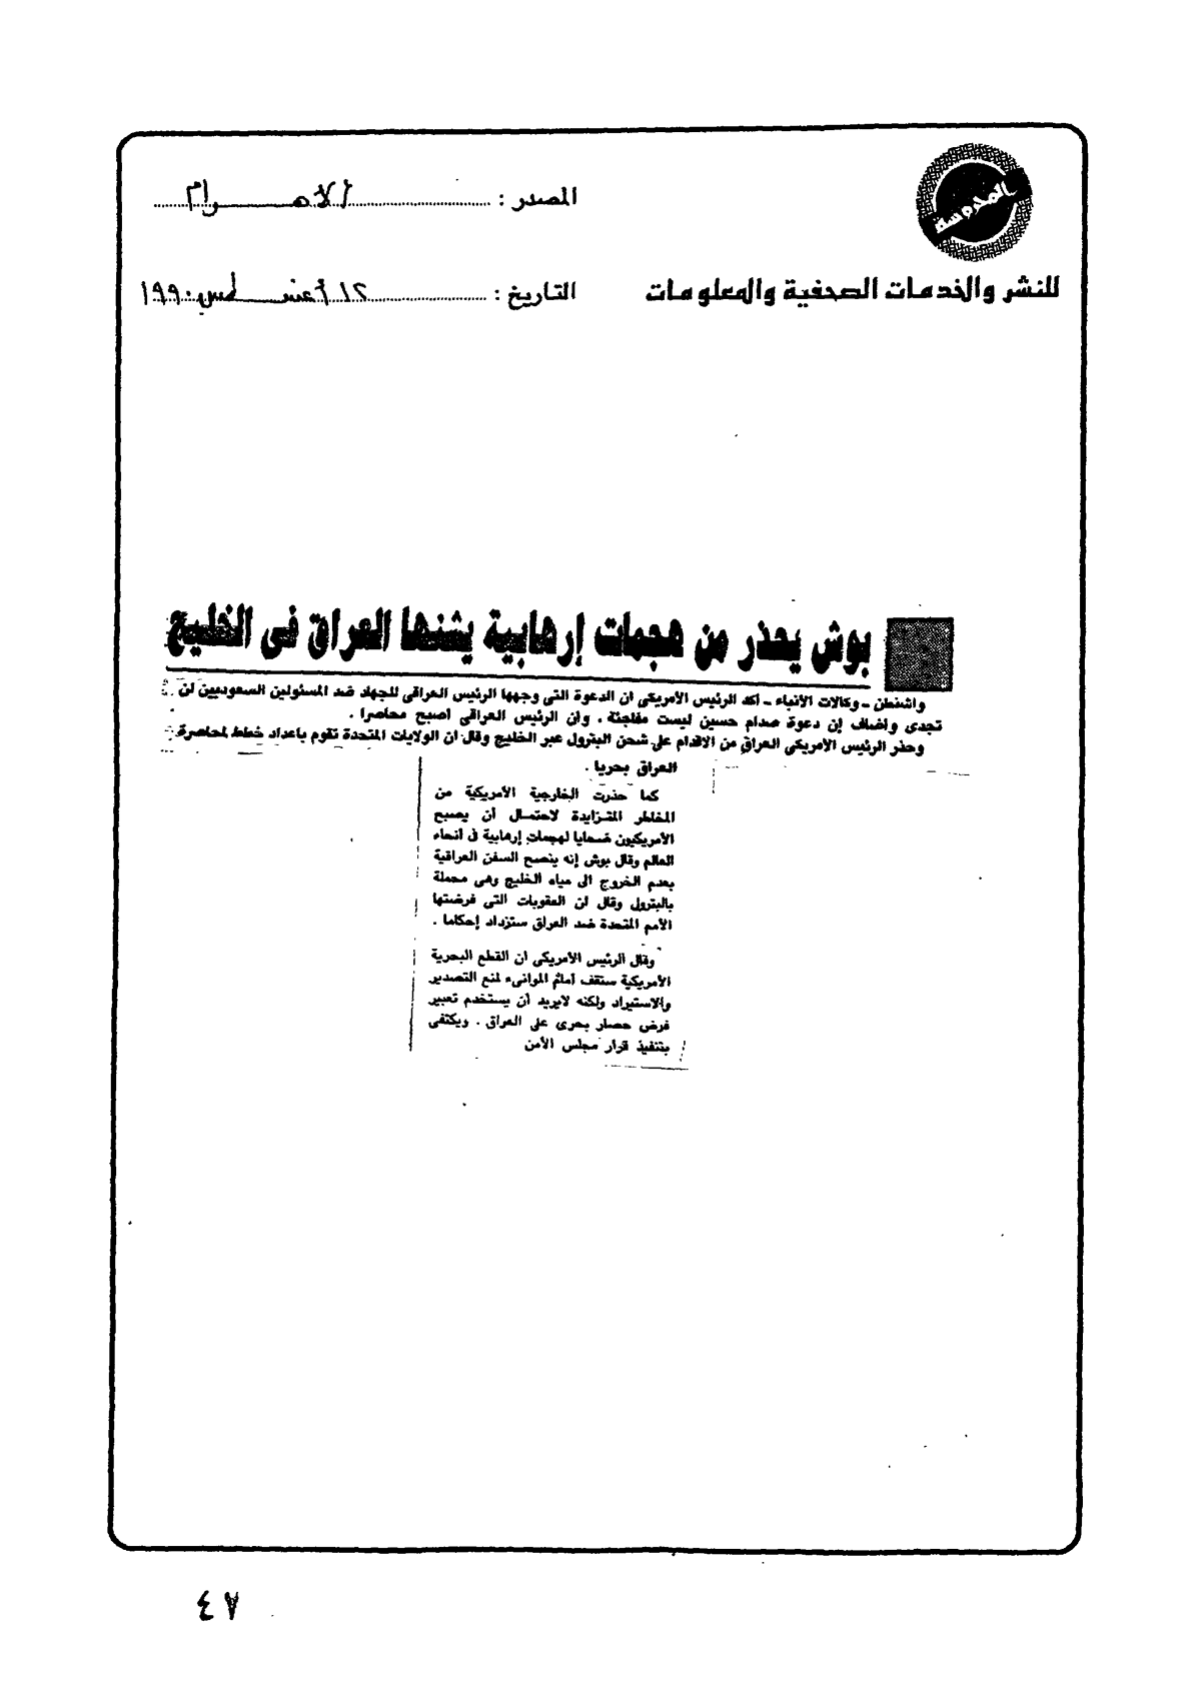 المحروسة
المصدر : الأهرام
للنشر والخدمات الصحفية والمعلومات
التاريخ : ١٢ أغسطس ١٩٩٠
بوش يحذر من هجمات إرهابية يشنها العراق فى الخليج
واشنطن ـ وكالات الأنباء ـ أكد الرئيس الأمريكى ان الدعوة التى وجهها الرئيس العراقى للجهاد ضد المسئولين السعوديين لن
تجدى واضاف إن دعوة صدام حسين ليست مفاجئة . وان الرئيس العراقى اصبح محاصرا .
وحذر الرئيس الأمريكى العراق من الاقدام على شحن البترول عبر الخليج وقال ان الولايات المتحدة تقوم باعداد خطط لمحاصرة
العراق بحريا .
كما حذرت الخارجية الأمريكية من
المخاطر المتزايدة لاحتمال أن يصبح
الأمريكيون ضحايا لهجمات إرهابية فى انحاء
العالم وقال بوش إنه ينصح السفن العراقية
بعدم الخروج الى مياه الخليج وهى محملة
بالبترول وقال ان العقوبات التى فرضتها
الأمم المتحدة ضد العراق ستزداد إحكاما .
وقال الرئيس الأمريكى ان القطع البحرية
الأمريكية ستقف أمام الموانىء لمنع التصدير
والاستيراد ولكنه لايريد أن يستخدم تعبير
فرض حصار بحرى على العراق . ويكتفى
بتنفيذ قرار مجلس الأمن
٤٧